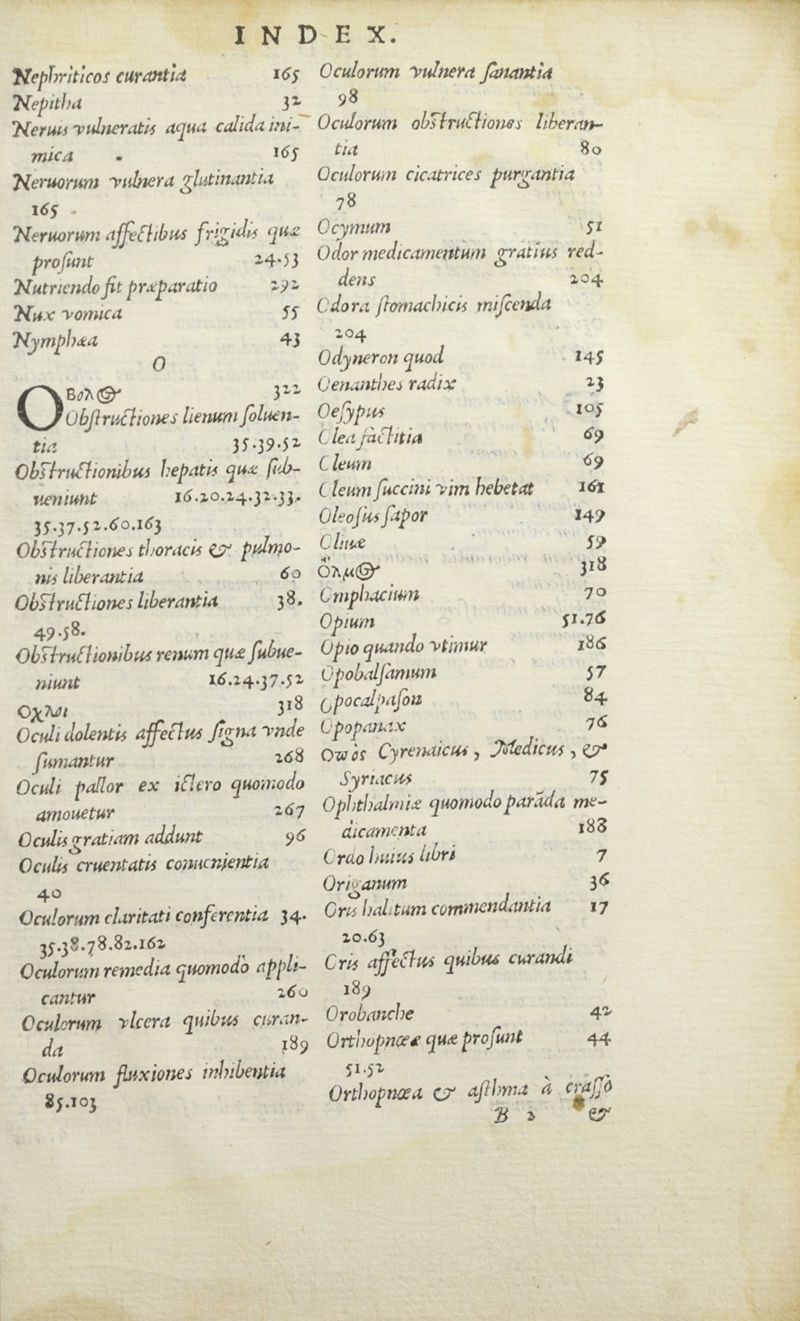 INDEX.
Nephriticos curantia 165
Nepitha 32
Neruis vulneratis aqua calida ini-
mica 165
Neruorum vulnera glutinantia
165
Neruorum affectibus frigidis quæ
prosunt 24.53
Nutriendo fit præparatio 292
Nux vomica 55
Nymphæa 43
O
Οβολος 322
Obstructiones lienum soluen-
tia 35.39.52
Obstructionibus hepatis quæ sub-
ueniunt 16.20.24.32.33.
35.37.52.60.163
Obstructiones thoracis & pulmo-
nis liberantia 60
Obstructiones liberantia 38.
49.58.
Obstructionibus renum quæ subue-
niunt 16.24.37.52
Οχλοι 318
Oculi dolentis affectus signa vnde
sumantur 268
Oculi pallor ex ictero quomodo
amouetur 267
Oculis gratiam addunt 96
Oculis cruentatis conuenientia
40
Oculorum claritati conferentia 34.
35.38.78.82.162
Oculorum remedia quomodo appli-
cantur 260
Oculorum vlcera quibus curan-
da 189
Oculorum fluxiones inhibentia
85.103
Oculorum vulnera sanantia
98
Oculorum obstructiones liberan-
tia 80
Oculorum cicatrices purgantia
78
Ocymum 51
Odor medicamentum gratius red-
dens 204
Odora stomachicis miscenda
204
Odyneron quod 145
Oenanthes radix 23
Oesypus 105
Olea factitia 69
Oleum 69
Oleum succini vim hebetat 161
Oleosus sapor 149
Oliuæ 59
Ὅλμος 318
Omphacium 70
Opium 51.76
Opio quando vtimur 186
Opobalsamum 57
Opocalpason 84
Opopanax 76
Οπὸς Cyrenaicus, Medicus, &
Syriacus 75
Ophthalmiæ quomodo parãda me-
dicamenta 188
Ordo huius libri 7
Origanum 36
Oris halitum commendantia 17
20.63
Oris affectus quibus curandi
189
Orobanche 42
Orthopnœæ quæ prosunt 44
51.52
Orthopnœa & asthma à crasso
B 2 &